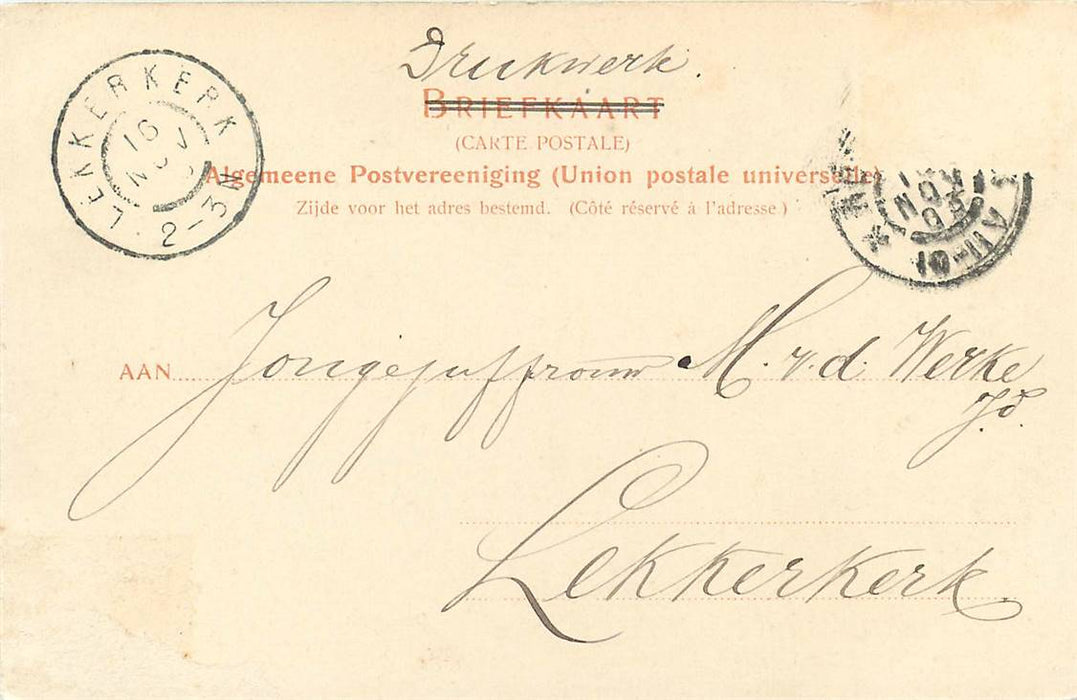 Drukwerk.
BRIEFKAART
(CARTE POSTALE)
Algemeene Postvereeniging (Union postale universelle)
Zijde voor het adres bestemd. (Côté réservé à l'adresse)
LEKKERKERK
16 NOV
2-3N
NOV
03
AAN Jongejuffrouw M. v. d. Werke
Jd.
Lekkerkerk.